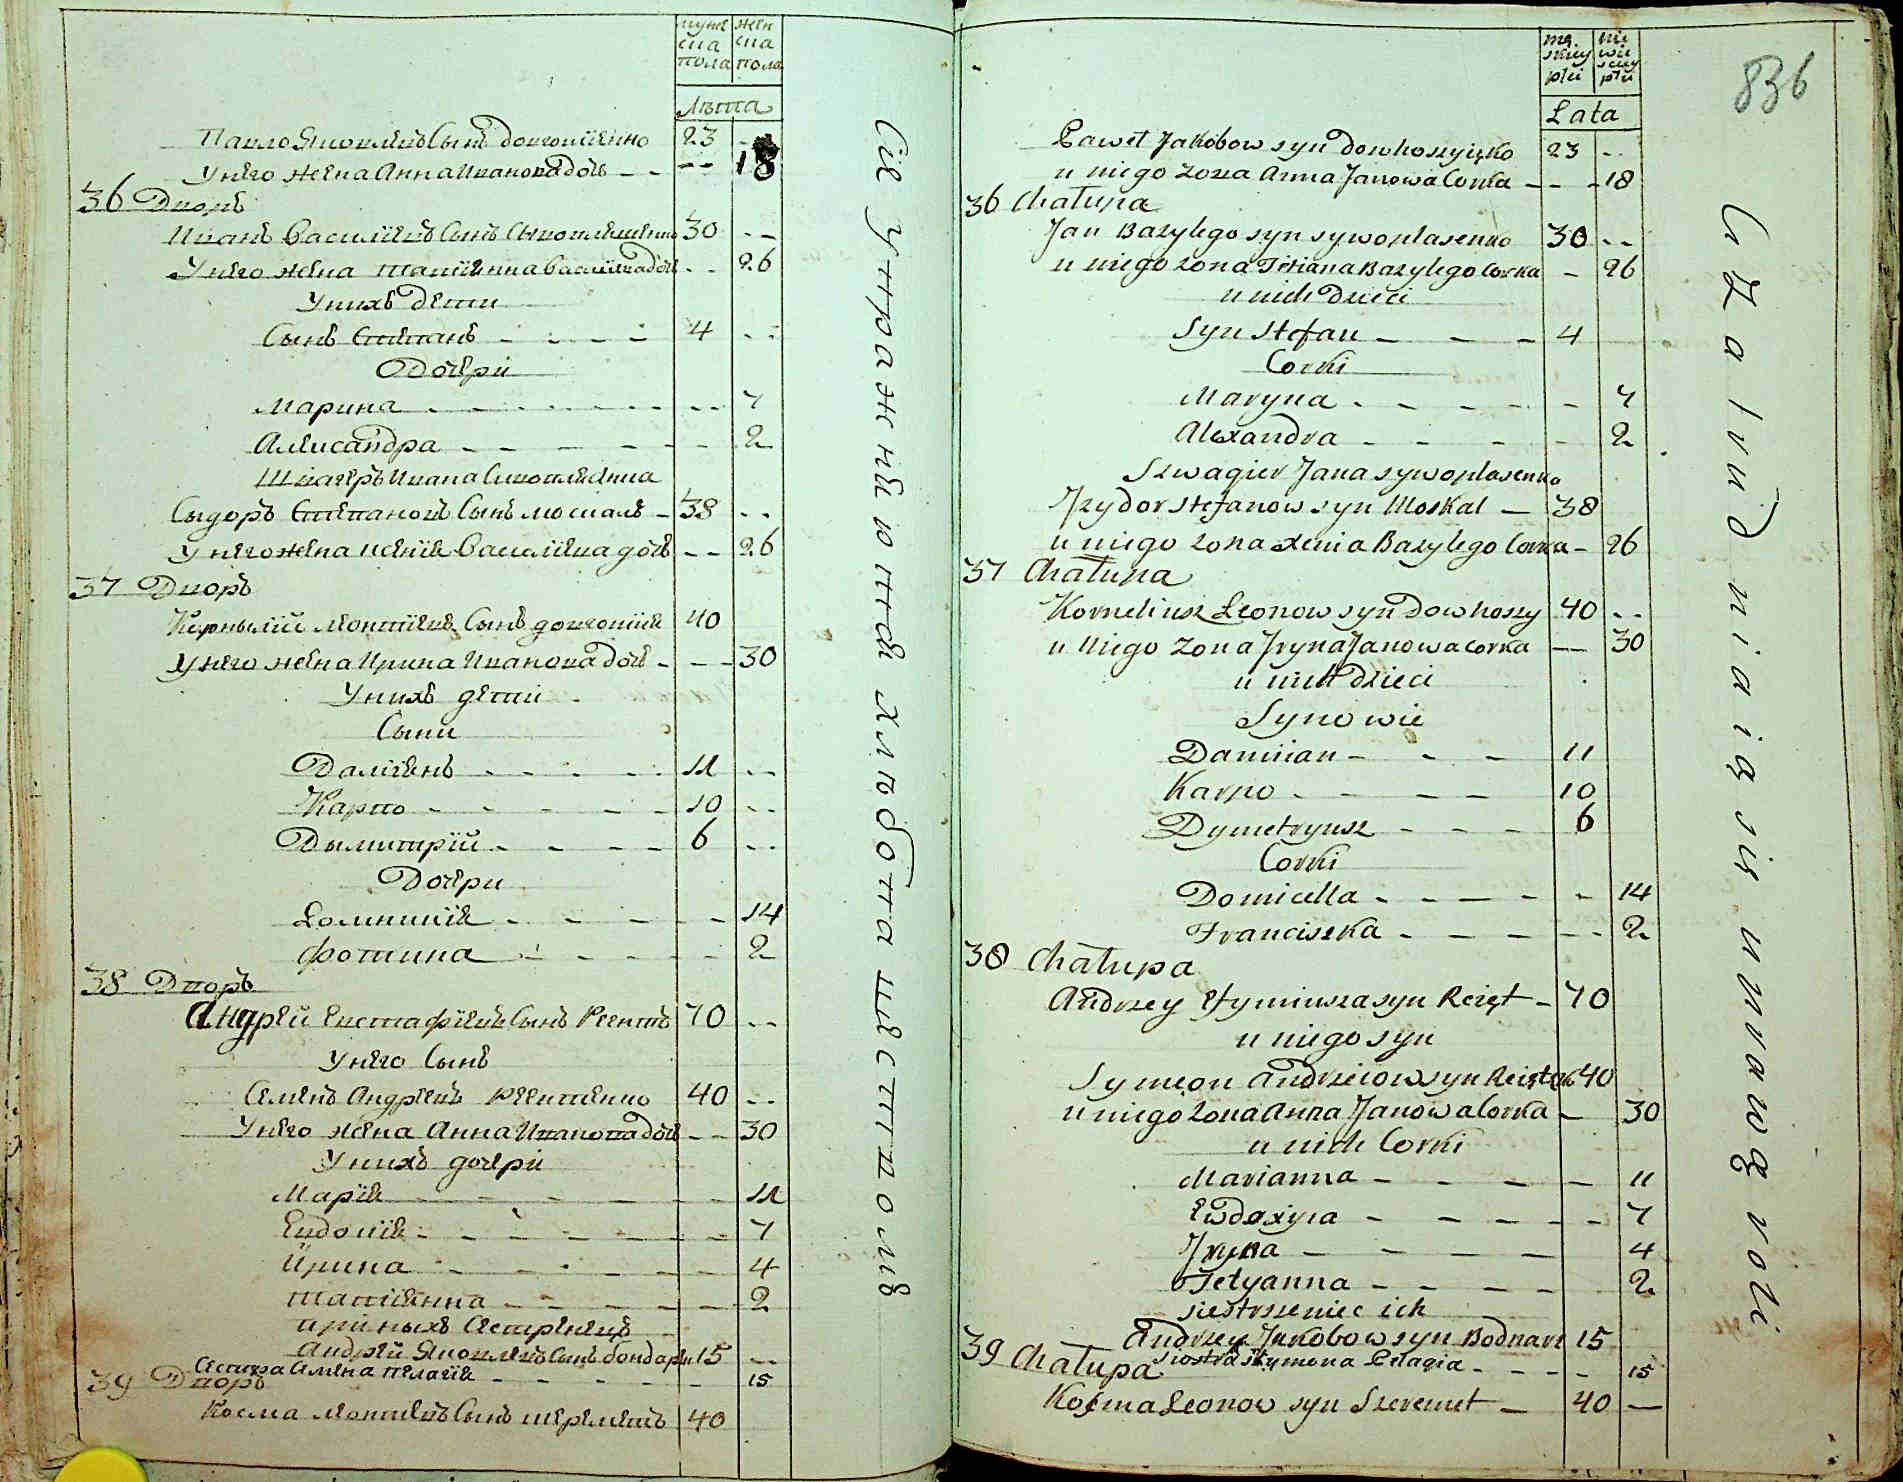 муже ска пола
жен ска пола
Лѣта
Павло Яковлевъ Сынъ довгошіенко 23 --
У него жена Анна Иванова дочь -- 18
36 Дворъ
Иванъ Василіевъ Сынъ 30 --
У него жена Татіанна Василіева дочь -- 26
У нихъ дети
Сынъ Степанъ 4 --
Дочери
Марина -- 7
Александра -- 2
Швагеръ Ивана
Сыдоръ Степановъ Сынъ москаль 38 --
У него жена Ксенія Василіева дочь -- 26
37 Дворъ
Корнылій Леонтіевъ Сынъ довгошія 40
У него жена Ирина Иванова дочь -- 30
У нихъ дети
Сыни
Даміянъ 11 --
Карпо 10 --
Дымитрій 6 --
Дочери
Домникія -- 14
Фотинна -- 2
38 Дворъ
Андрей Евстафіевъ Сынъ 70 --
У него Сынъ
Семенъ Андреевъ 40 --
У него жена Анна Иванова дочь -- 30
У нихъ дочери
Марія -- 11
Евдокія -- 7
Ирина -- 4
Татіянна -- 2
при ныхъ Сестренецъ
Андрей Яковлевъ Сынъ бондарь 15 --
Сестра Семена Пелагія -- 15
39 Дворъ
Косма Леонтіевъ Сынъ шереметъ 40
Сіе Упражненіе хлѣбопашествомъ
mę skiey płci
nie wie sciey płci
Lata
836
Paweł Jakóbow syn dowhoszyięko 23 --
u niego żona Anna Janowa Corka -- 18
36 Chałupa
Jan Bazylego syn sywoplasenko 30 --
u niego żona Tetiana Bazylego Corka - 26
u nich Dzieci
Syn Stefan 4
Corki
Maryna - 7
Alexandra - 2
Szwagier Jana sywoplasenko
Jzydor Stefanow syn Moskal 38
u niego żona Xenia Bazylego Corka - 26
37 Chałupa
Korneliusz Leonow syn Dowhoszy 40 --
u niego żona Jryna Janowa corka - 30
u nich dzieci
Synowie
Damiian 11
Karpo 10
Dymetryusz 6
Corki
Domicella - 14
Franciszka -- 2
38 Chałupa
Andrzey syn 70
u niego syn
Symeon Andrzeiow syn 40
u niego żona Anna Janowa Corka - 30
u nich Corki
Marianna - 11
Ewdoxyia - 7
Jryna 4
Tetyanna 2
siestrzeniec ich
Andrzey Jakóbow syn Bodnarz 15
siostra Szymona Pelagia - 15
39 Chałupa
Kosma Leonow syn Szeremet 40 -
Zatrudniaią się uprawą roli